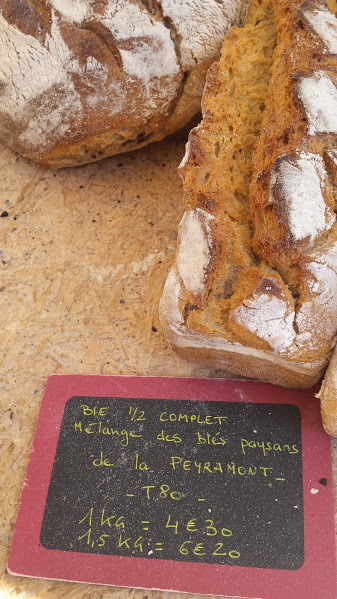 BLE 1/2 COMPLET
Mélange des blés paysans
de la PEYRAMONT -
- T80 -
1 KG = 4€30
1,5 KG = 6€20